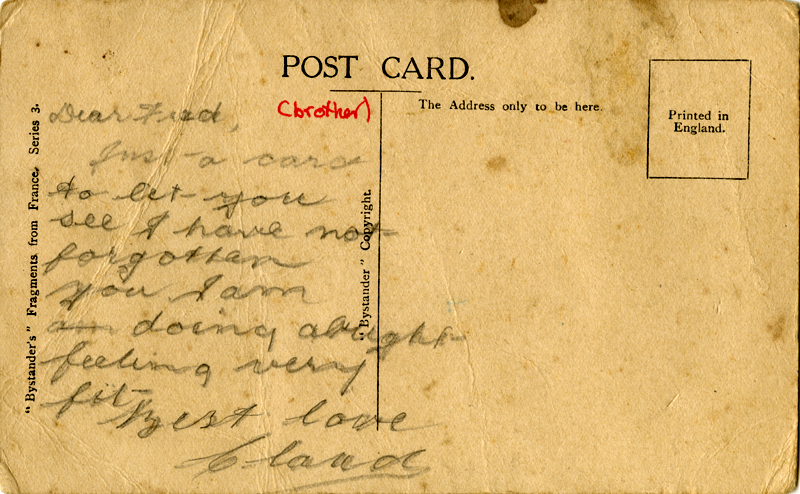 POST CARD.
The Address only to be here.
Printed in
England.
"Bystander's" Fragments from France. Series 3.
"Bystander" Copyright.
(brother)
Dear Fred,
Just a card
to let you
see I have not
forgotten
you I am
am doing alright
feeling very
fit
Best love
Claud